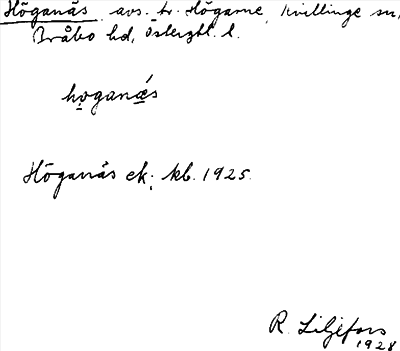 Höganäs avs. tr. Högarne, Kvillinge sn,
Bråbo hd, Östergtl. l.
hoganǽs
Höganäs ek. kb. 1925.
R. Liljefors
1928